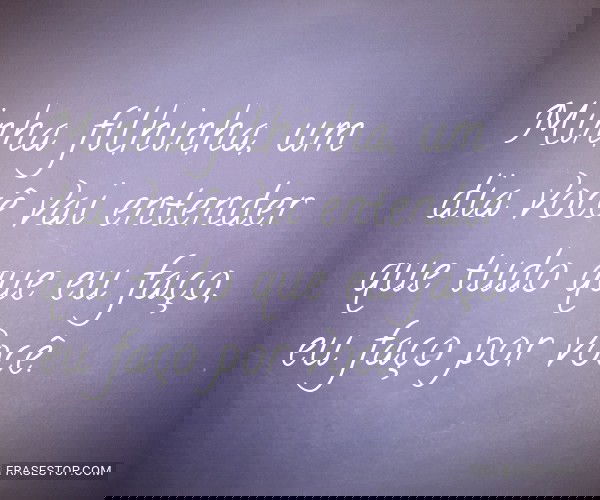 Minha filhinha, um
dia você vai entender
que tudo que eu faço,
eu faço por você.
FRASESTOP.COM